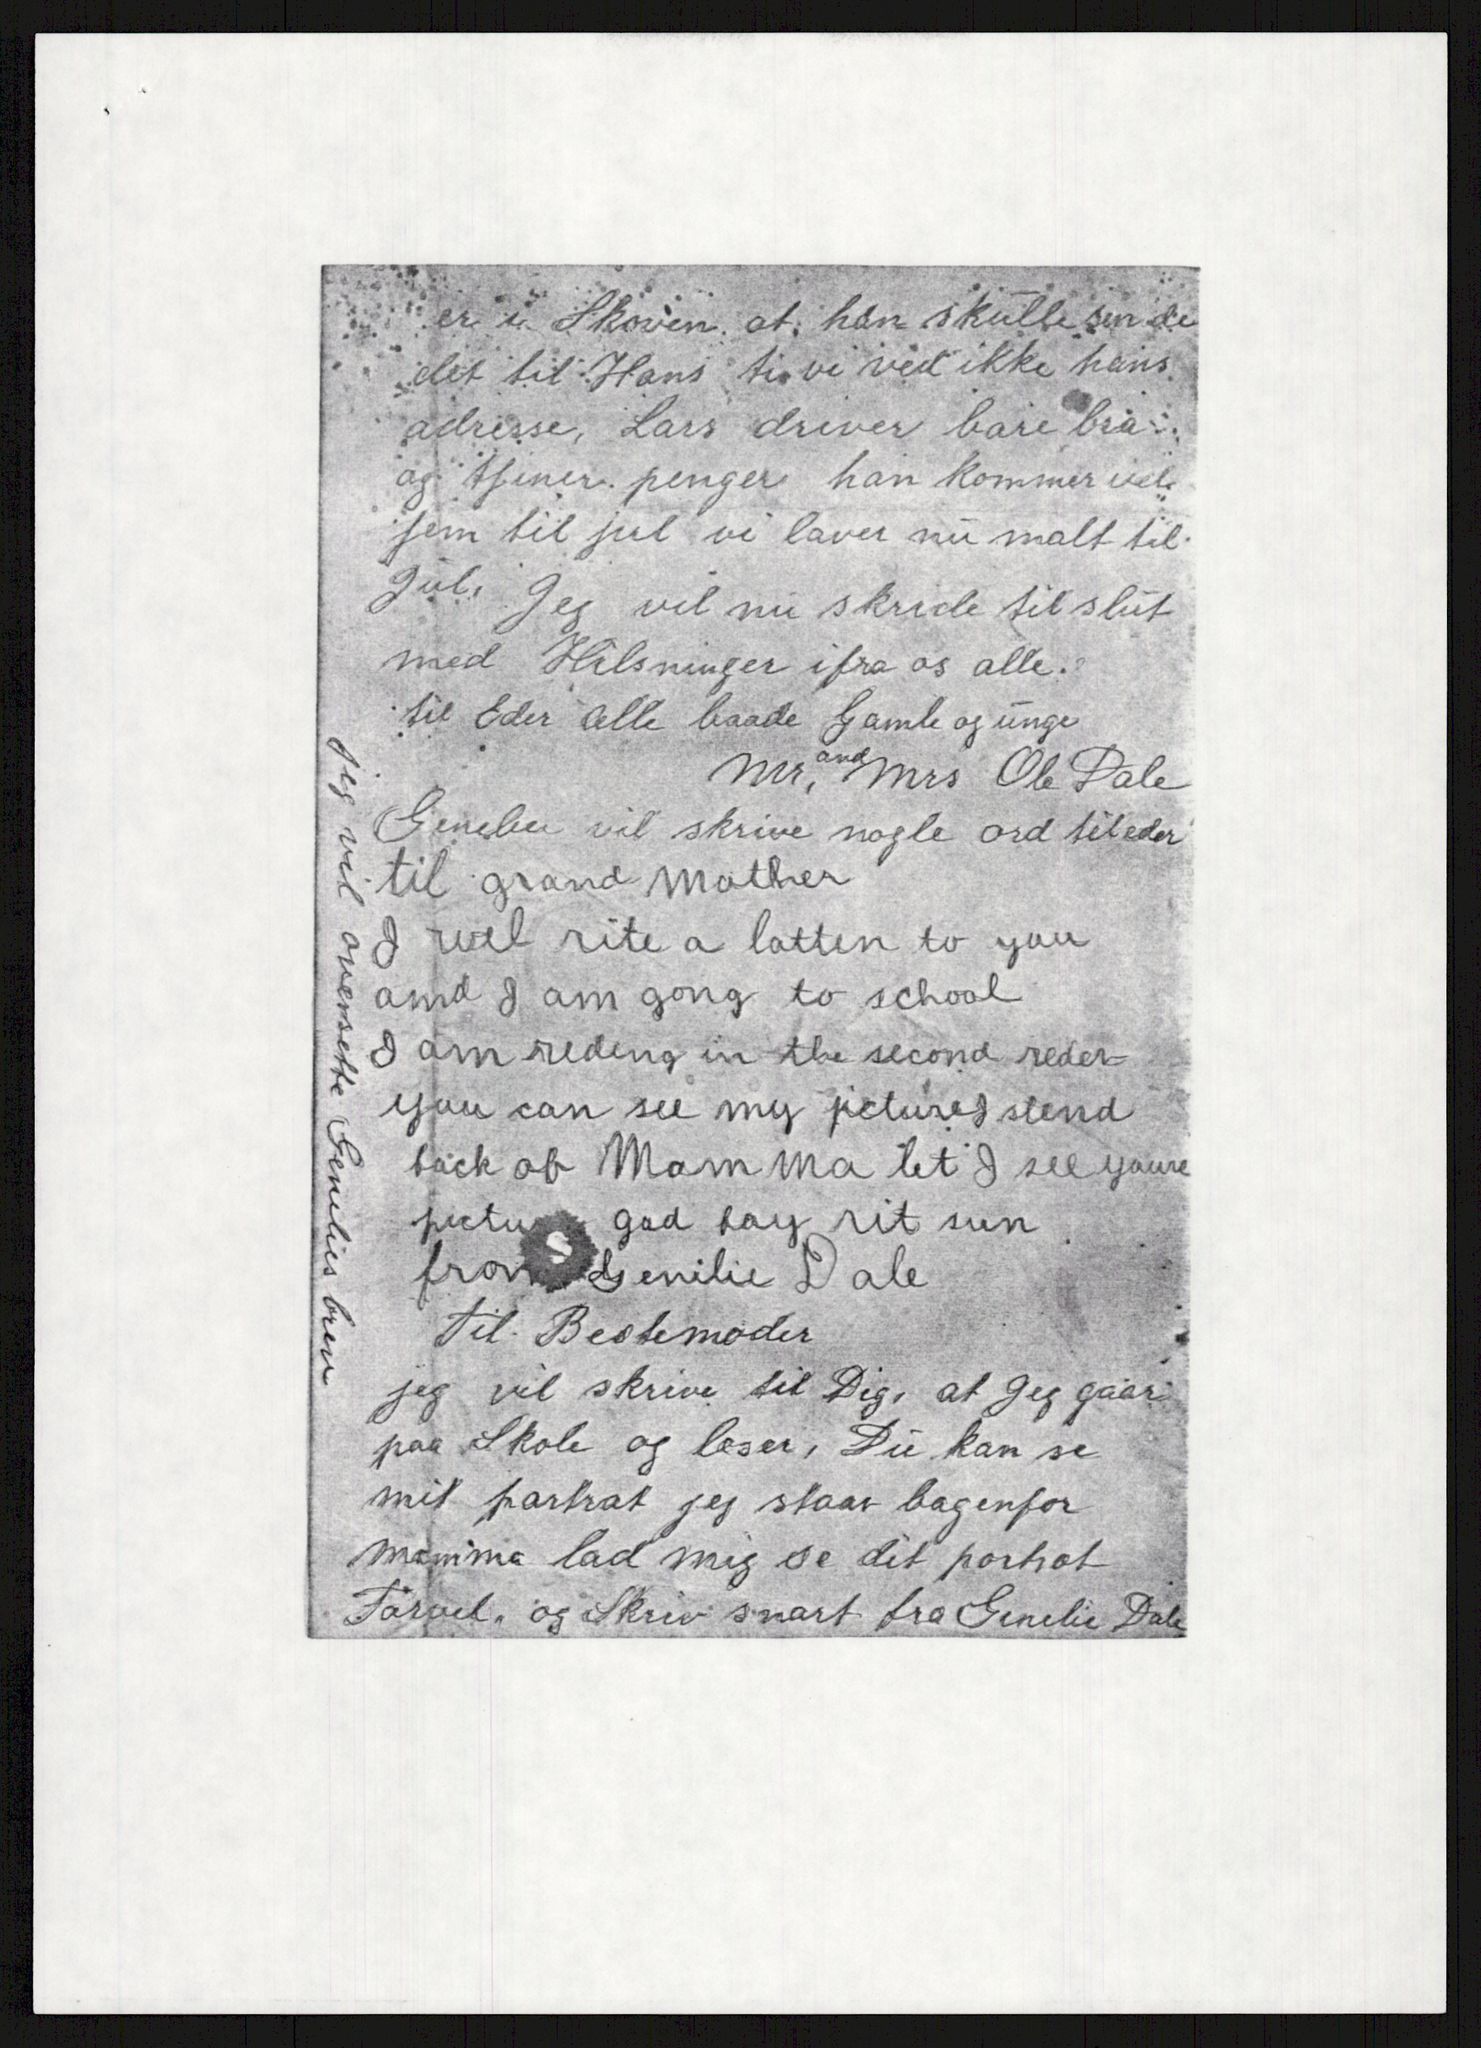 er i Skoven at han skulle sende
det til Hans ti vi ved ikke hans
adresse, Lars driver bare bra
og tjener penger han kommer vel
jem til jul vi laver nu malt til
Jul. Jeg vil nu skride til slut
med Hilsninger ifra os alle.
til Eder alle baade Gamle og unge
Mr, and Mrs Ole Dale
Genelie vil skrive nogle ord til eder
til grand Mother
I wel rite a latten to you
amd I am gong to school
I am redeng in the second reder
you can see my picture I stend
back of Mam Ma let I see youre
pictu god bay rit sun
from Genilie Dale
Til Bestemoder
jeg vil skrive til Dig, at Jeg gaar
paa Skole og leser, Du kan se
mit partrat jeg staar bagenfor
Mamma lad mig se dit portrat
Farvel, og Skriv snart fra Genelie Dale
jeg vil oversette Genelies brev
S